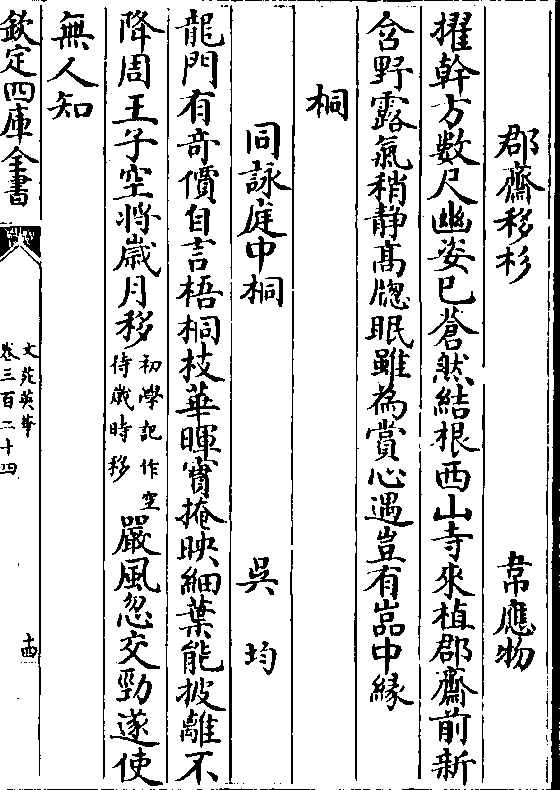 郡齋移杉 韋應物
擢幹方數尺幽姿已蒼然結根西山寺來植郡齋前新
含野露氣稍静髙牕眠雖為賞心遇豈有嵓中縁
桐
同詠庭中桐 吳均
龍門有奇價自言梧桐枝華暉實掩映細葉能披離不
降周王子空將嵗月移初學記作空待嵗時移嚴風忽交勁遂使
無人知
欽定四庫全書
文苑英華
卷三百二十四
十四